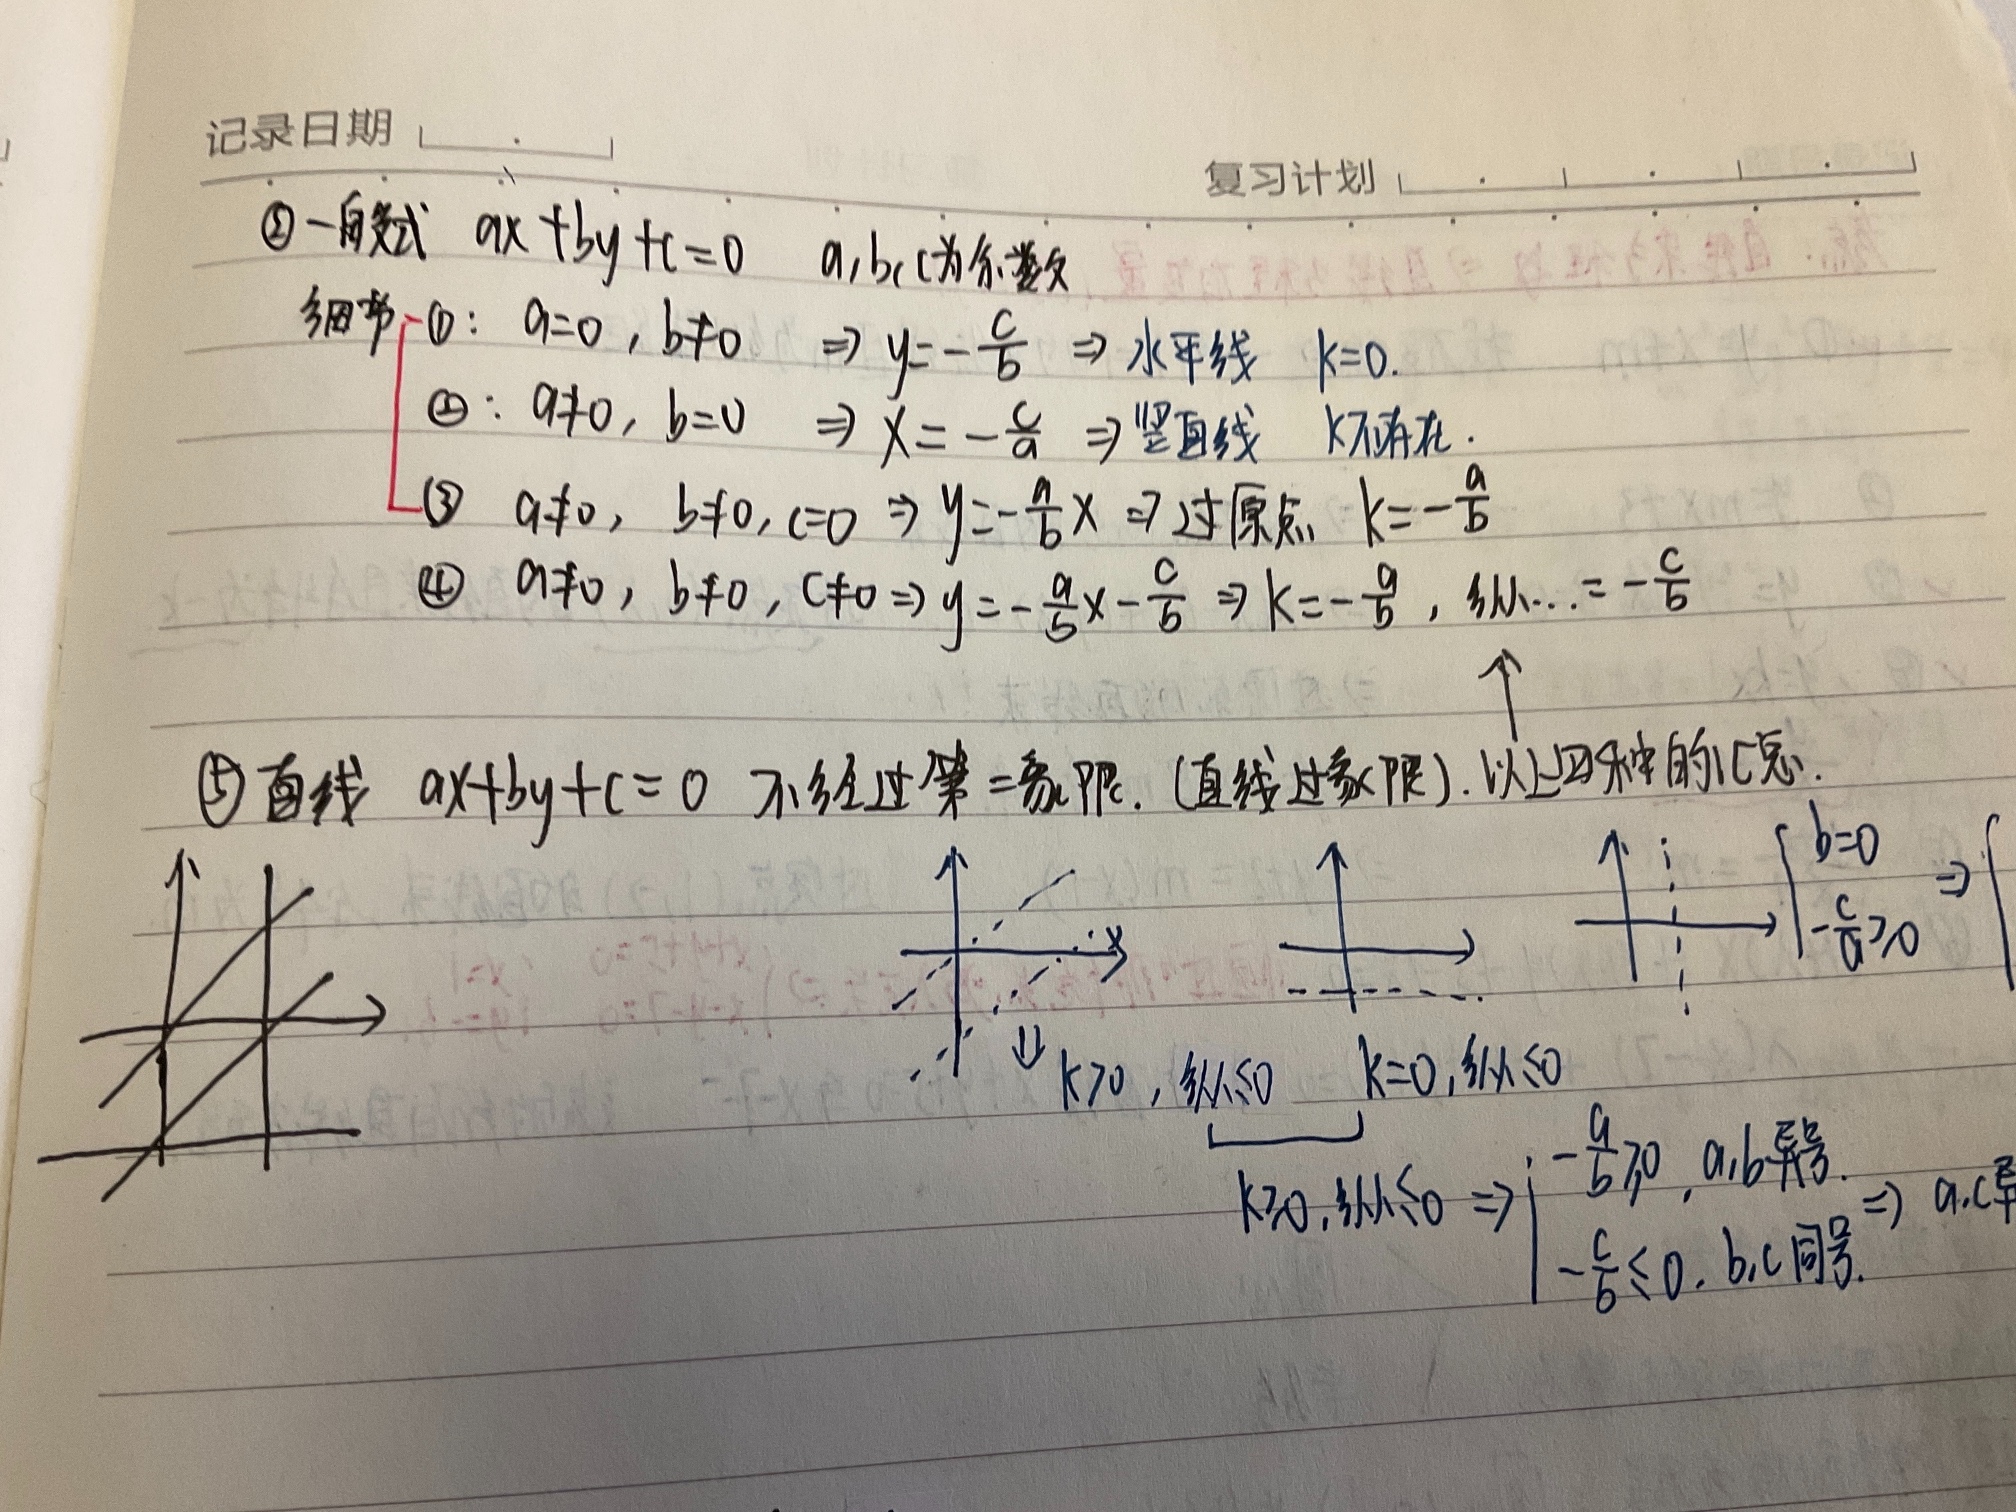 记录日期
复习计划
②一般式 ax+by+c=0 a,b,c为系数
细节 ①: a=0, b≠0 ⇒ y=-c/b ⇒ 水平线 k=0.
②: a≠0, b=0 ⇒ x=-c/a ⇒ 竖直线 k不存在.
③ a≠0, b≠0, c=0 ⇒ y=-a/b x ⇒ 过原点 k=-a/b
④ a≠0, b≠0, c≠0 ⇒ y=-a/b x-c/b ⇒ k=-a/b, 纵...=-c/b
↑
⑤直线 ax+by+c=0 不经过第二象限.(直线过象限).以上四种的汇总.
{b=0
-c/a≥0 ⇒ {
x
⇓ k>0, 纵≤0 k=0, 纵≤0
k≥0, 纵≤0 ⇒ {-a/b≥0, a,b异号.
-c/b≤0, b,c同号. ⇒ a,c异